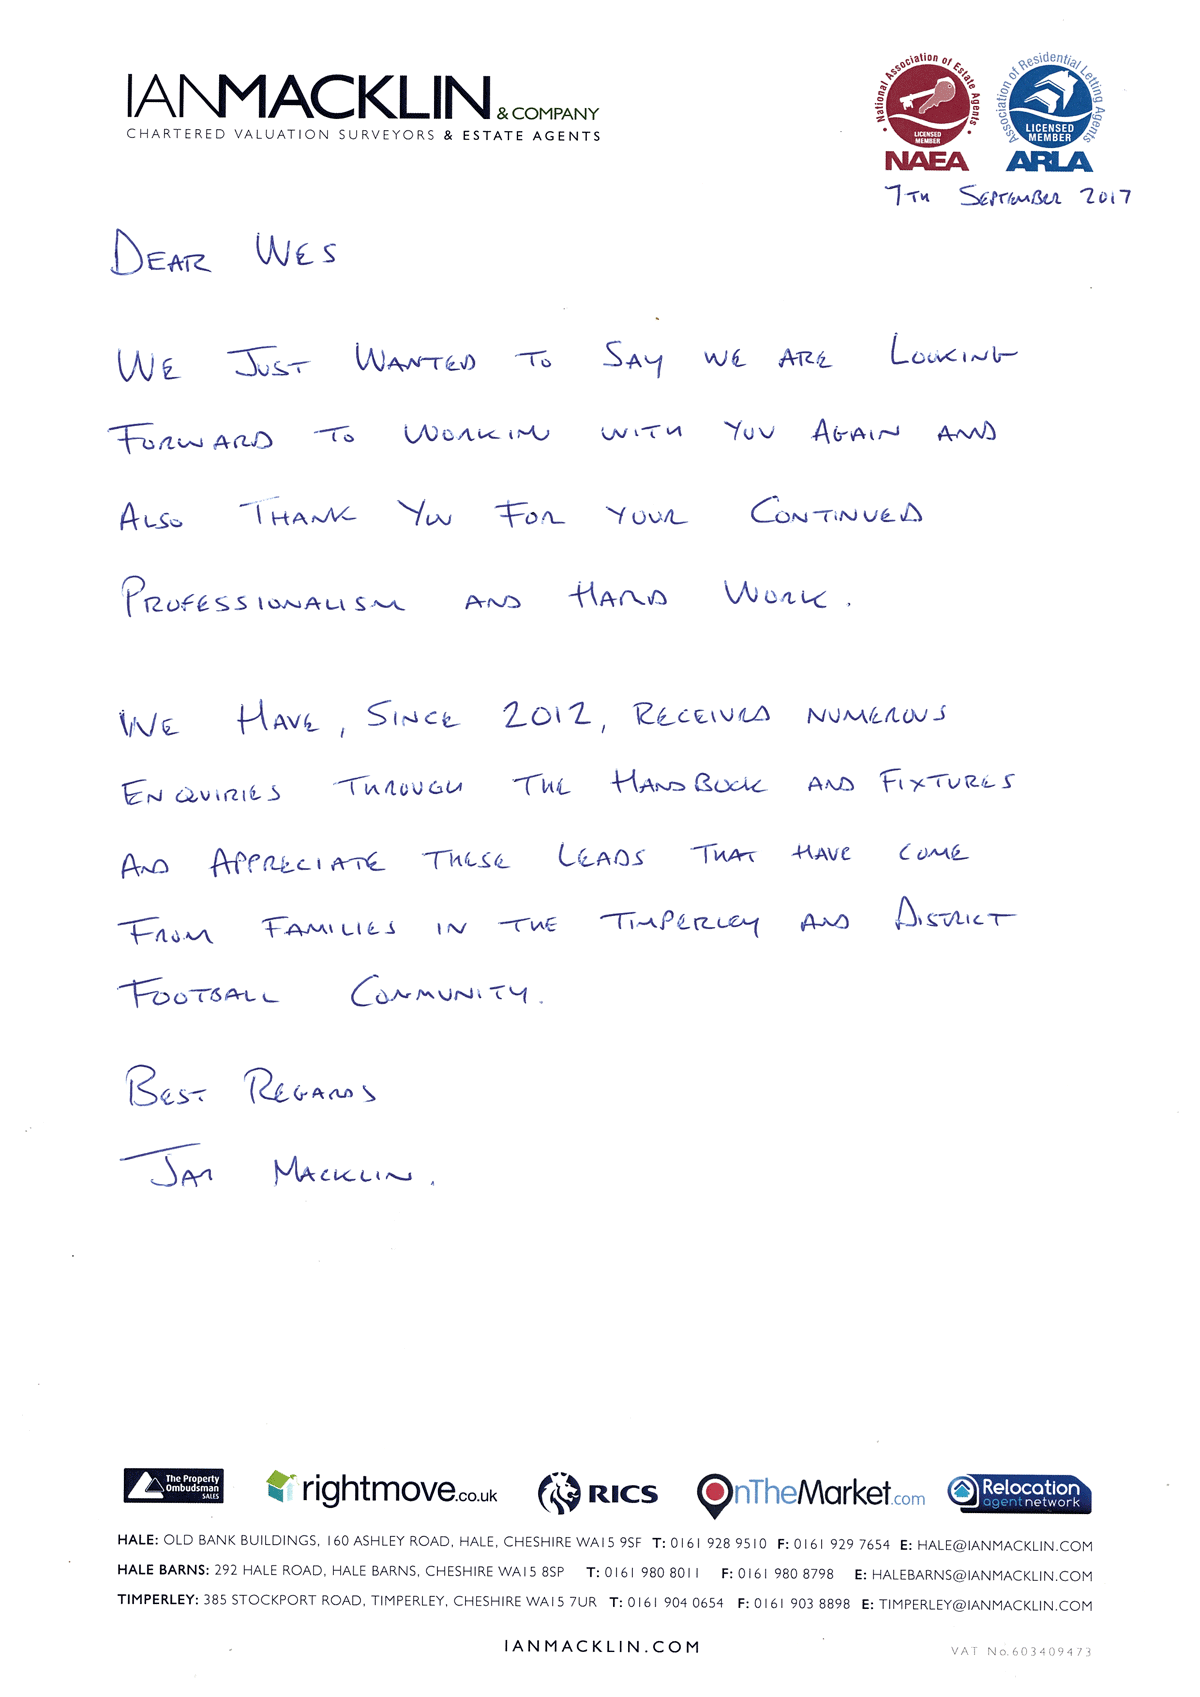 IANMACKLIN & COMPANY
CHARTERED VALUATION SURVEYORS & ESTATE AGENTS
National Association of Estate Agents
LICENSED
MEMBER
NAEA
Association of Residential Letting Agents
LICENSED
MEMBER
ARLA
7TH SEPTEMBER 2017
DEAR WES
WE JUST WANTED TO SAY WE ARE LOOKING
FORWARD TO WORKING WITH YOU AGAIN AND
ALSO THANK YOU FOR YOUR CONTINUED
PROFESSIONALISM AND HARD WORK.
WE HAVE, SINCE 2012, RECEIVED NUMEROUS
ENQUIRIES THROUGH THE HANDBOOK AND FIXTURES
AND APPRECIATE THESE LEADS THAT HAVE COME
FROM FAMILIES IN THE TIMPERLEY AND DISTRICT
FOOTBALL COMMUNITY.
BEST REGARDS
MACKLIN.
The Property
Ombudsman
SALES
rightmove.co.uk
RICS
OnTheMarket.com
Relocation
agentnetwork
HALE: OLD BANK BUILDINGS, 160 ASHLEY ROAD, HALE, CHESHIRE WA15 9SF T: 0161 928 9510 F: 0161 929 7654 E: HALE@IANMACKLIN.COM
HALE BARNS: 292 HALE ROAD, HALE BARNS, CHESHIRE WA15 8SP T: 0161 980 8011 F: 0161 980 8798 E: HALEBARNS@IANMACKLIN.COM
TIMPERLEY: 385 STOCKPORT ROAD, TIMPERLEY, CHESHIRE WA15 7UR T: 0161 904 0654 F: 0161 903 8898 E: TIMPERLEY@IANMACKLIN.COM
IANMACKLIN.COM
VAT No. 603409473